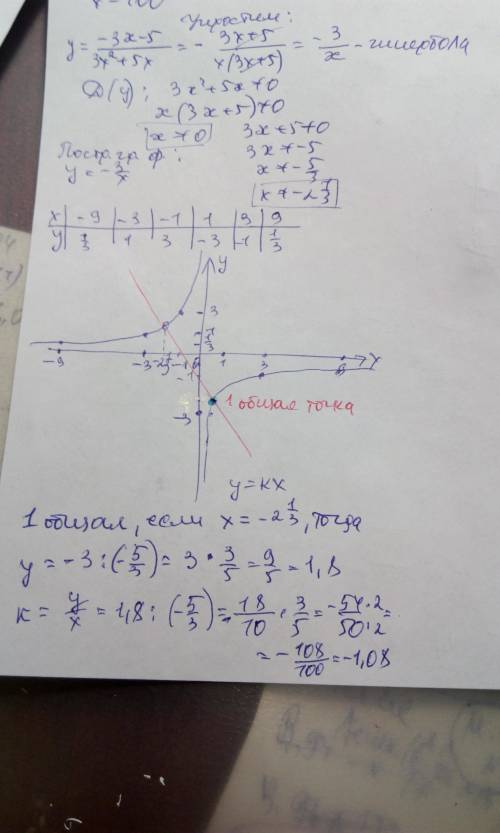 Упростим:
y = \frac{-3x-5}{3x²+5x} = - \frac{3x+5}{x(3x+5)} = -\frac{3}{x} - гипербола
D(y): 3x²+5x≠0
x(3x+5)≠0
x≠0 3x+5≠0
3x≠-5
x≠-\frac{5}{3}
x≠-2\frac{1}{3}
Постр. граф.:
y = -\frac{3}{x}
x | -9 | -3 | -1 | 1 | 3 | 9
y | \frac{1}{3} | 1 | 3 | -3 | -1 | \frac{1}{3}
y
3
1
\frac{1}{3}
-9 -3 -2\frac{1}{3} -1 0 1 3 9 x
-1
-3
1 общая точка
y=kx
1 общая, если x = -2\frac{1}{3}, тогда
y = -3:(-\frac{5}{3}) = 3·\frac{3}{5} = \frac{9}{5} = 1,8
k = \frac{y}{x} = 1,8:(-\frac{5}{3}) = -\frac{18}{10}·\frac{3}{5} = \frac{-54·2}{50·2} =
= -\frac{108}{100} = -1,08